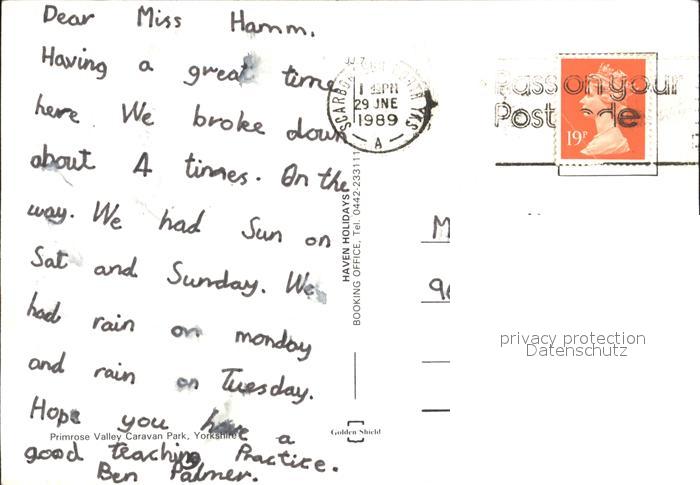 Dear Miss Hamm.
Having a great time
here We broke down
about 4 times. On the
way. We had Sun on
Sat and Sunday. We
had rain on monday
and rain on Tuesday.
Hope you have a
good teaching Practice.
Ben Palmer.
Primrose Valley Caravan Park, Yorkshire
HAVEN HOLIDAYS
BOOKING OFFICE, Tel. 0442-233111
Golden Shield
1 PM
29 JNE
1989
A
Pass on your
Postcode
19P
M
privacy protection
Datenschutz